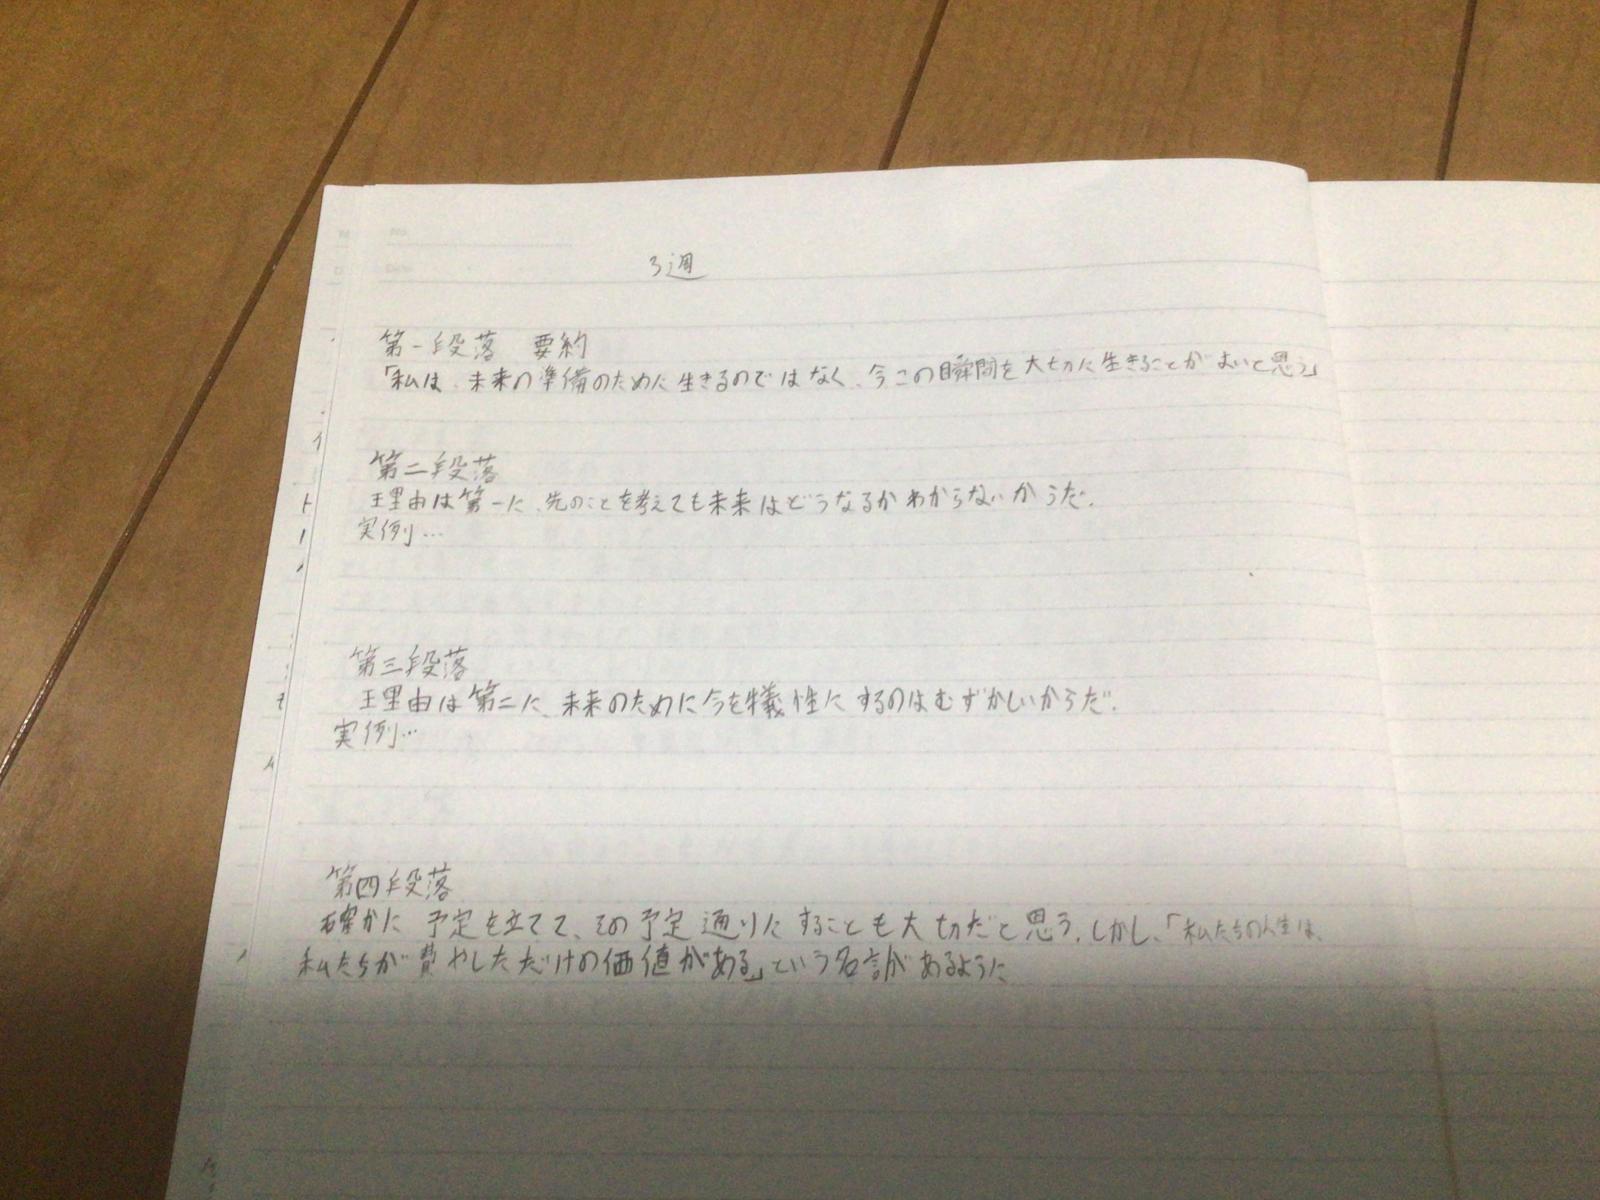 3週
第一段落 要約
「私は、未来の準備のために生きるのではなく、今この瞬間を大切に生きることがよいと思う」
第二段落
理由は第一に、先のことを考えても未来はどうなるかわからないからだ。
実例…
第三段落
理由は第二に、未来のために今を犠牲にするのはむずかしいからだ。
実例…
第四段落
確かに予定を立てて、その予定通りにすることも大切だと思う。しかし、「私たちの人生は、
私たちが費やしただけの価値がある」という名言があるように